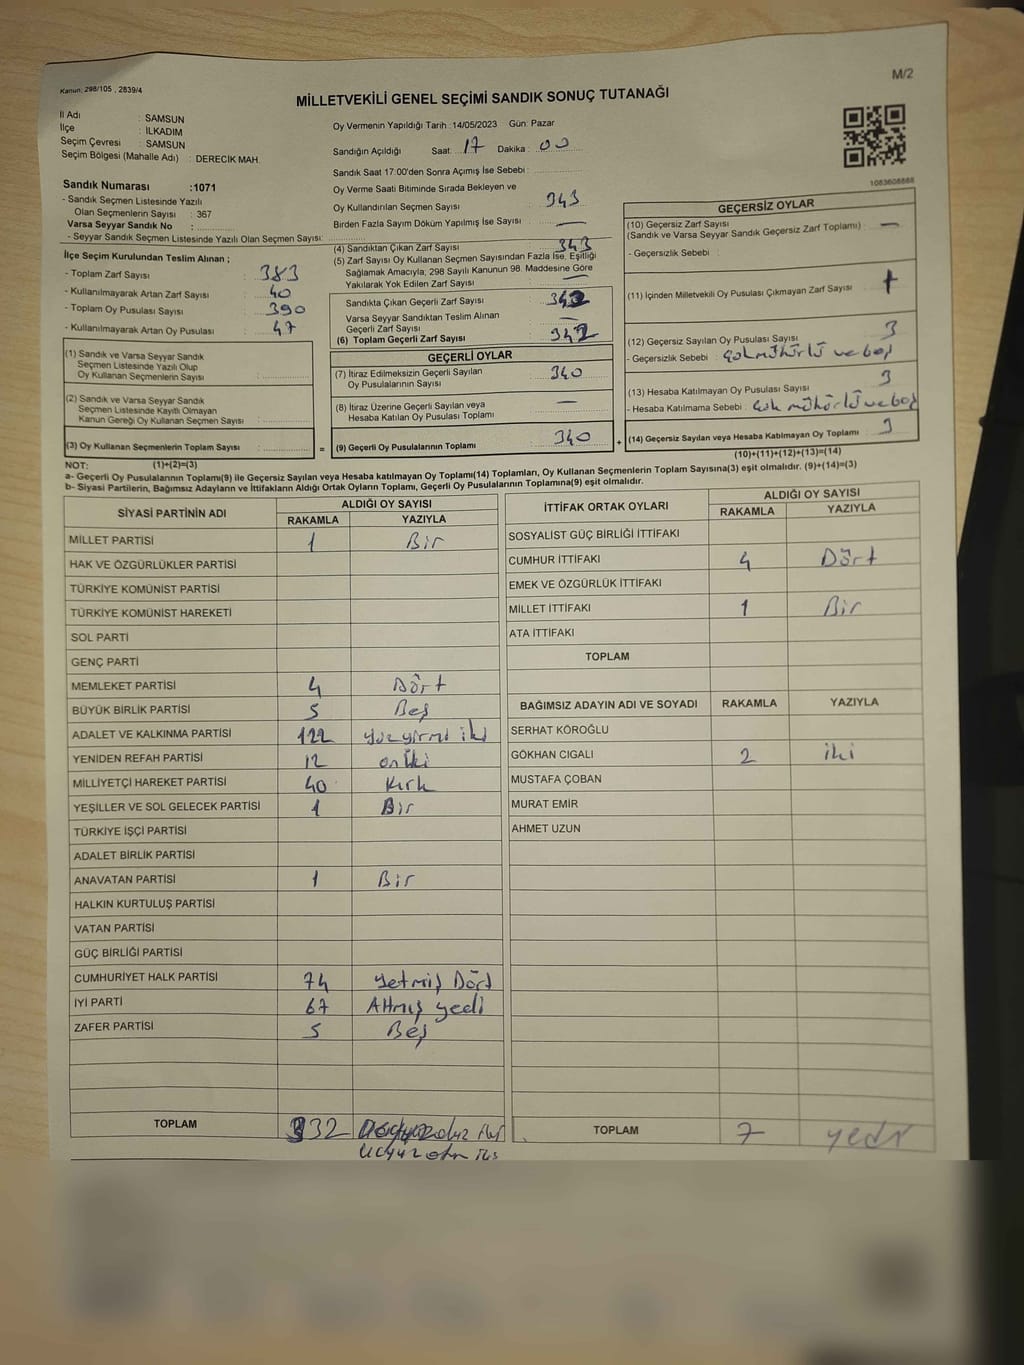 M/2
Kanun: 298/105 , 2839/4
MİLLETVEKİLİ GENEL SEÇİMİ SANDIK SONUÇ TUTANAĞI
İl Adı : SAMSUN
İlçe : İLKADIM
Seçim Çevresi : SAMSUN
Seçim Bölgesi (Mahalle Adı) : DERECİK MAH.
Sandık Numarası :1071
- Sandık Seçmen Listesinde Yazılı
Olan Seçmenlerin Sayısı : 367
Varsa Seyyar Sandık No :
- Seyyar Sandık Seçmen Listesinde Yazılı Olan Seçmen Sayısı:
İlçe Seçim Kurulundan Teslim Alınan ;
- Toplam Zarf Sayısı : 383
- Kullanılmayarak Artan Zarf Sayısı : 40
- Toplam Oy Pusulası Sayısı : 390
- Kullanılmayarak Artan Oy Pusulası : 47
(1) Sandık ve Varsa Seyyar Sandık
Seçmen Listesinde Yazılı Olup
Oy Kullanan Seçmenlerin Sayısı :
(2) Sandık ve Varsa Seyyar Sandık
Seçmen Listesinde Kayıtlı Olmayan
Kanun Gereği Oy Kullanan Seçmen Sayısı :
(3) Oy Kullanan Seçmenlerin Toplam Sayısı :
Oy Vermenin Yapıldığı Tarih :14/05/2023 Gün: Pazar
Sandığın Açıldığı Saat: 17 Dakika : 00
Sandık Saat 17:00'den Sonra Açımış İse Sebebi :
Oy Verme Saati Bitiminde Sırada Bekleyen ve
Oy Kullandırılan Seçmen Sayısı : 343
Birden Fazla Sayım Döküm Yapılmış İse Sayısı : —
(4) Sandıktan Çıkan Zarf Sayısı : 343
(5) Zarf Sayısı Oy Kullanan Seçmen Sayısından Fazla İse, Eşitliği
Sağlamak Amacıyla; 298 Sayılı Kanunun 98. Maddesine Göre
Yakılarak Yok Edilen Zarf Sayısı : —
Sandıkta Çıkan Geçerli Zarf Sayısı : 342
Varsa Seyyar Sandıktan Teslim Alınan
Geçerli Zarf Sayısı : —
(6) Toplam Geçerli Zarf Sayısı : 342
GEÇERLİ OYLAR
(7) İtiraz Edilmeksizin Geçerli Sayılan
Oy Pusulalarının Sayısı : 340
(8) İtiraz Üzerine Geçerli Sayılan veya
Hesaba Katılan Oy Pusulası Toplamı : —
= (9) Geçerli Oy Pusulalarının Toplamı : 340 +
1083608888
GEÇERSİZ OYLAR
(10) Geçersiz Zarf Sayısı
(Sandık ve Varsa Seyyar Sandık Geçersiz Zarf Toplamı) : —
- Geçersizlik Sebebi :
(11) İçinden Milletvekili Oy Pusulası Çıkmayan Zarf Sayısı :
(12) Geçersiz Sayılan Oy Pusulası Sayısı : 3
- Geçersizlik Sebebi : Çok mühürlü ve boş
(13) Hesaba Katılmayan Oy Pusulası Sayısı : 3
- Hesaba Katılmama Sebebi : Çok mühürlü ve boş
(14) Geçersiz Sayılan veya Hesaba Katılmayan Oy Toplamı : 3
NOT: (1)+(2)=(3) (10)+(11)+(12)+(13)=(14)
a- Geçerli Oy Pusulalarının Toplamı(9) ile Geçersiz Sayılan veya Hesaba katılmayan Oy Toplamı(14) Toplamları, Oy Kullanan Seçmenlerin Toplam Sayısına(3) eşit olmalıdır. (9)+(14)=(3)
b- Siyasi Partilerin, Bağımsız Adayların ve İttifakların Aldığı Ortak Oyların Toplamı, Geçerli Oy Pusulalarının Toplamına(9) eşit olmalıdır.
SİYASİ PARTİNİN ADI ALDIĞI OY SAYISI
RAKAMLA YAZIYLA
MİLLET PARTİSİ 1 Bir
HAK VE ÖZGÜRLÜKLER PARTİSİ
TÜRKİYE KOMÜNİST PARTİSİ
TÜRKİYE KOMÜNİST HAREKETİ
SOL PARTİ
GENÇ PARTİ
MEMLEKET PARTİSİ 4 Dört
BÜYÜK BİRLİK PARTİSİ 5 Beş
ADALET VE KALKINMA PARTİSİ 122 yüzyirmi iki
YENİDEN REFAH PARTİSİ 12 oniki
MİLLİYETÇİ HAREKET PARTİSİ 40 Kırk
YEŞİLLER VE SOL GELECEK PARTİSİ 1 Bir
TÜRKİYE İŞÇİ PARTİSİ
ADALET BİRLİK PARTİSİ
ANAVATAN PARTİSİ 1 Bir
HALKIN KURTULUŞ PARTİSİ
VATAN PARTİSİ
GÜÇ BİRLİĞİ PARTİSİ
CUMHURİYET HALK PARTİSİ 74 yetmiş Dört
İYİ PARTİ 67 Atmış yedi
ZAFER PARTİSİ 5 Beş
TOPLAM 332
İTTİFAK ORTAK OYLARI ALDIĞI OY SAYISI
RAKAMLA YAZIYLA
SOSYALİST GÜÇ BİRLİĞİ İTTİFAKI
CUMHUR İTTİFAKI 4 Dört
EMEK VE ÖZGÜRLÜK İTTİFAKI
MİLLET İTTİFAKI 1 Bir
ATA İTTİFAKI
TOPLAM
BAĞIMSIZ ADAYIN ADI VE SOYADI RAKAMLA YAZIYLA
SERHAT KÖROĞLU
GÖKHAN CIGALI 2 iki
MUSTAFA ÇOBAN
MURAT EMİR
AHMET UZUN
TOPLAM 7 yedi